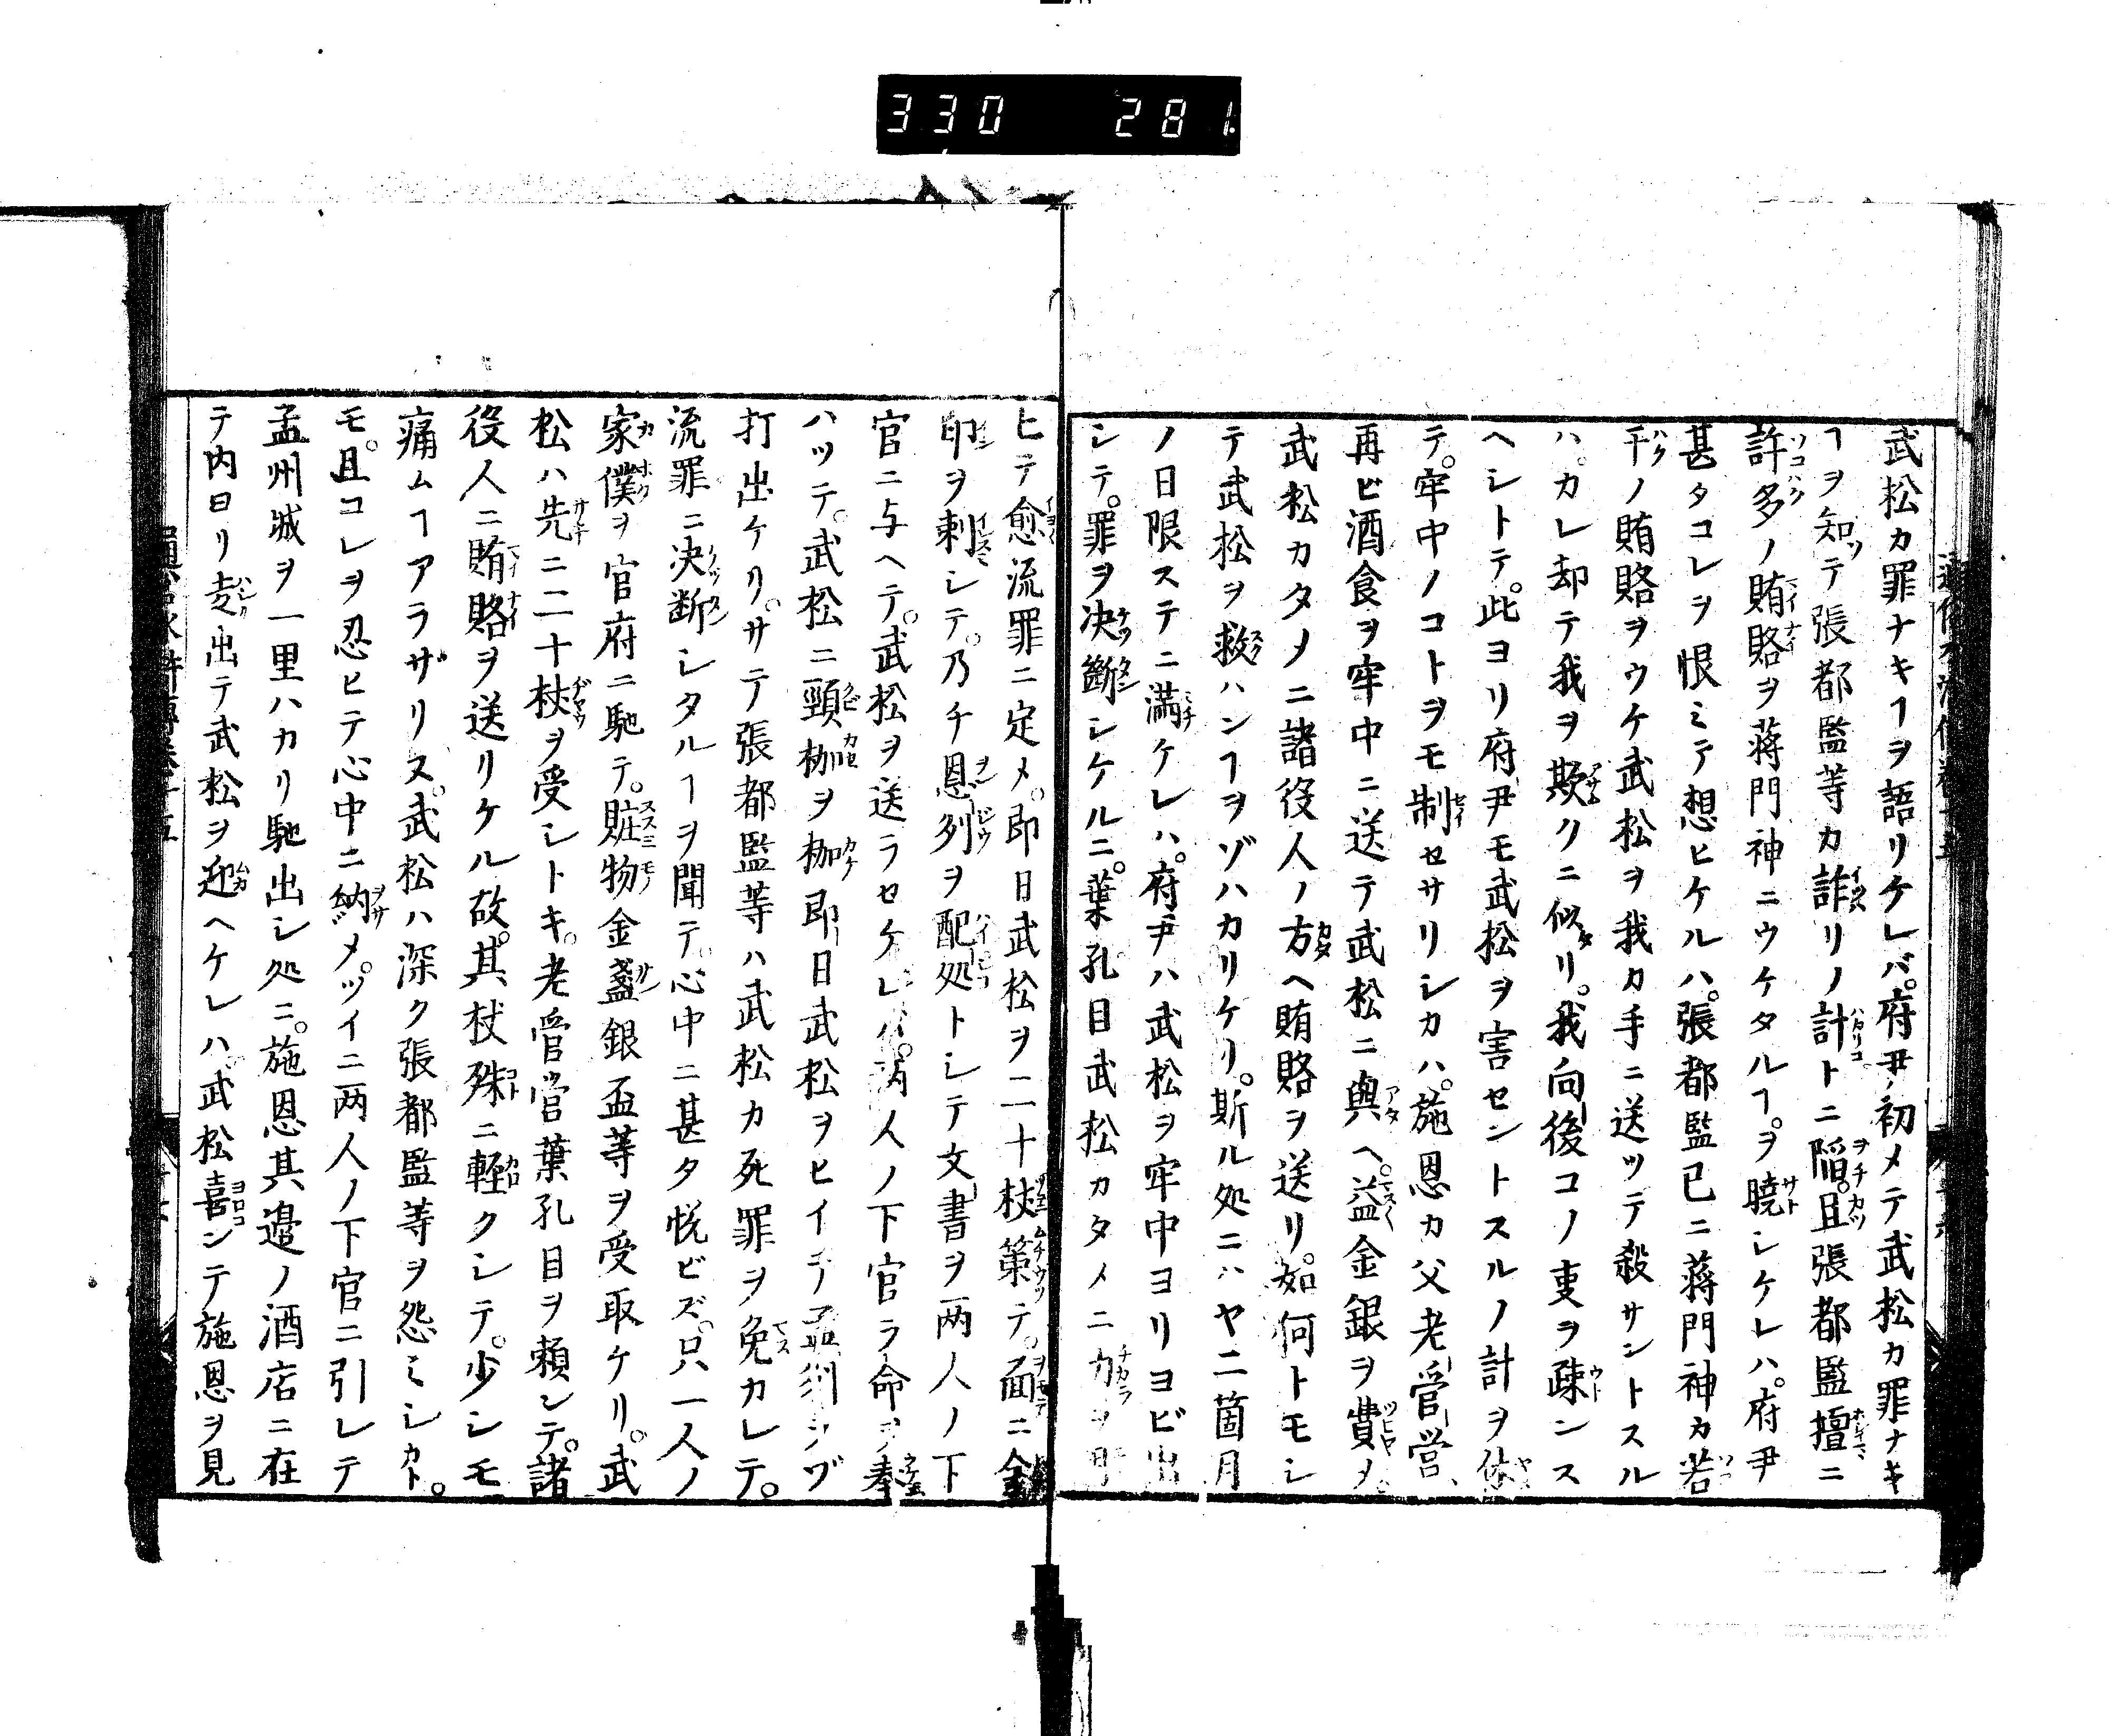 330 281
武松カ罪ナキヿヲ語リケレバ。府尹初メテ武松カ罪ナキ
ヿヲ知ッテ張都監等カ詐リノ計トニ陥。且張都監擅ニ
許多ノ賄賂ヲ蒋門神ニウケタルヿ。ヲ曉シケレハ。府尹
甚タコレヲ恨ミテ想ヒケルハ。張都監已ニ蒋門神カ若
干ノ賄賂ヲウケ武松ヲ我カ手ニ送ッテ殺サントスル
ハ。カレ却テ我ヲ欺クニ似リ。我向後コノ叓ヲ疎ンス
ヘシトテ。此ヨリ府尹モ武松ヲ害セントスルノ計ヲ休
テ。牢中ノコトヲモ制セサリシカハ。施恩カ父老管営
再ビ酒食ヲ牢中ニ送テ武松ニ與ヘ。益金銀ヲ費メ。
武松カタメニ諸役人ノ方ヘ賄賂ヲ送リ。如何トモシ
テ武松ヲ救ハンヿヲゾハカリケリ。斯ル処ニハヤ二箇月
ノ日限ステニ満ケレハ。府尹ハ武松ヲ牢中ヨリヨビ出
シテ。罪ヲ决斷シケルニ。葉孔目武松カタメニ力ヲ用
ヒテ愈流罪ニ定メ。即日武松ヲ二十杖策テ。面ニ金
印ヲ刺シテ。乃チ恩列ヲ配処トシテ文書ヲ两人ノ下
官ニ与ヘテ。武松ヲ送ラセケレハ。两人ノ下官ラ命ヲ奉
ハッテ。武松ニ頸枷ヲ枷即日武松ヲヒイテ孟州ヲゾ
打出ケリ。サテ張都監等ハ武松カ死罪ヲ免カレテ。
流罪ニ决断シタルヿヲ聞テ。心中ニ甚タ悦ビズ。只一人ノ
家僕ヲ官府ニ馳テ。賍物金盞銀盃等ヲ受取ケリ。武
松ハ先ニ二十杖ヲ受シトキ。老管営葉孔目ヲ頼シテ。諸
役人ニ賄賂ヲ送リケル故。其杖殊ニ軽クシテ。少シモ
痛ムヿアラザリス。武松ハ深ク張都監等ヲ怨ミシカト。
モ。且コレヲ忍ヒテ心中ニ納メ。ツイニ两人ノ下官ニ引レテ
孟州城ヲ一里ハカリ馳出シ処ニ。施恩其邉ノ酒店ニ在
テ内ヨリ走出テ武松ヲ迎ヘケレハ。武松喜ンテ施恩ヲ見